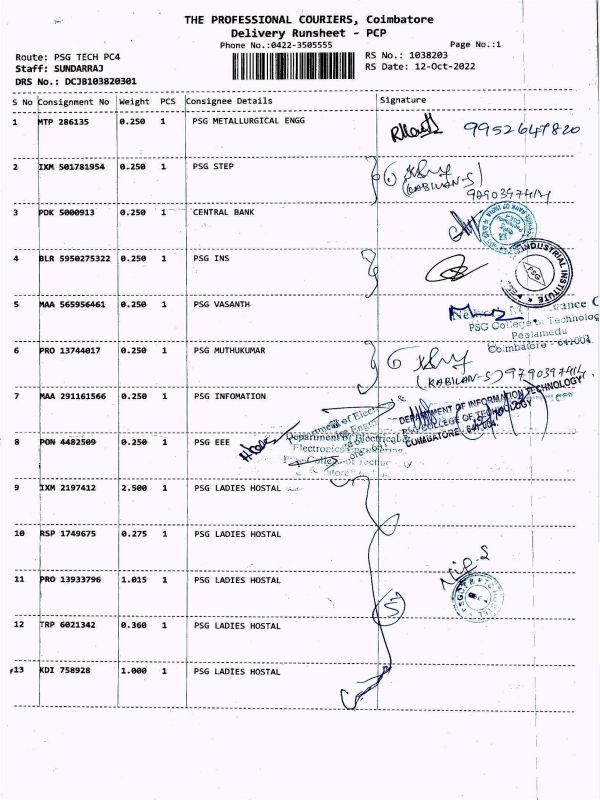 THE PROFESSIONAL COURIERS, Coimbatore
Delivery Runsheet - PCP
Phone No.:0422-3505555
Page No.:1
Route: PSG TECH PC4
RS No.: 1038203
Staff: SUNDARRAJ
RS Date: 12-Oct-2022
DRS No.: DCJB103820301
S No Consignment No Weight PCS Consignee Details Signature
1 MTP 286135 0.250 1 PSG METALLURGICAL ENGG 9952647820
2 IXM 501781954 0.250 1 PSG STEP
(KABILAN-S)
9790397414
3 PDK 5000913 0.250 1 CENTRAL BANK
4 BLR 5950275322 0.250 1 PSG INS
INDUSTRIAL INSTITUTE
PSG
5 MAA 565956461 0.250 1 PSG VASANTH
PSG College of Technolog
Peelamedu
Coimbatore - 641004
6 PRO 13744017 0.250 1 PSG MUTHUKUMAR
(KABILAN-S) 9790397414
7 MAA 291161566 0.250 1 PSG INFOMATION
DEPARTMENT OF INFORMATION TECHNOLOGY
PSG COLLEGE OF TECHNOLOGY
COIMBATORE 641 004.
8 PON 4482509 0.250 1 PSG EEE
Department of Electrical &
Electronics Engineering
9 IXM 2197412 2.500 1 PSG LADIES HOSTAL
10 RSP 1749675 0.275 1 PSG LADIES HOSTAL
11 PRO 13933796 1.015 1 PSG LADIES HOSTAL
12 TRP 6021342 0.360 1 PSG LADIES HOSTAL
5
13 KDI 758928 1.000 1 PSG LADIES HOSTAL